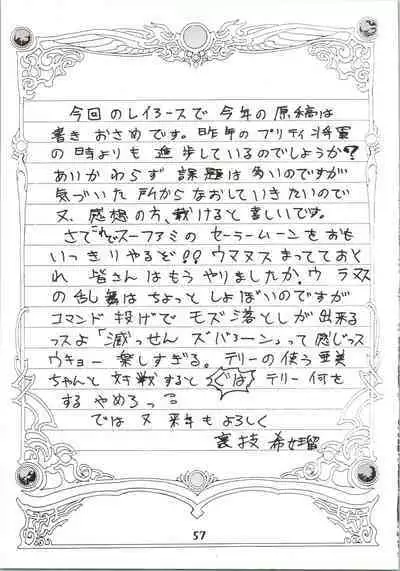 今回のレイアースで今年の原稿は
書きおさめです。昨年のプリティ将軍
の時よりも進歩しているのでしょうか?
あいかわらず課題は多いのですが
気づいた所からなおしていきたいので
又、感想の方、戴けると喜しいです。
さてこれでスーファミのセーラームーンをおも
いっきりやるぞ!!ウマヌスまってておと
れ 皆さんはもうやりましたか。ウラヌス
の乱舞はちょっとしょぼいのですが
コマンド投げでモズ落としが出来る
っスよ「滅っせんズバァーン」って感じっス
ウキョー楽しすぎる。テリーの使う亜美
ちゃんと対戦すると ぐは テリー何を
するやめろっ
では又来年もよろしく
裏技 希留
57